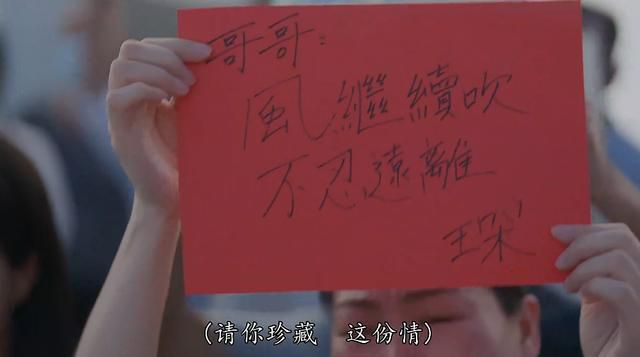 哥哥：
風繼續吹
不忍遠離
王朵
(请你珍藏 这份情)